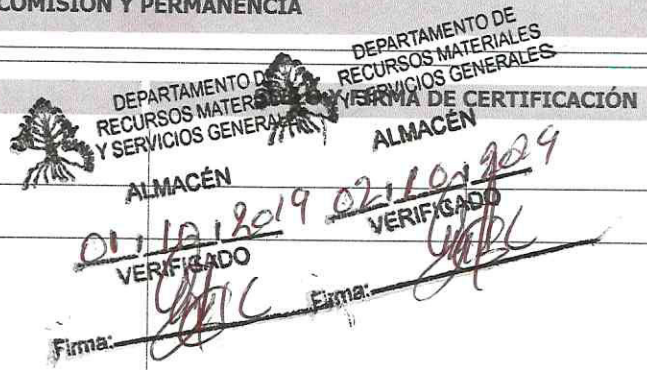 COMISIÓN Y PERMANENCIA
Y FIRMA DE CERTIFICACIÓN
DEPARTAMENTO DE
RECURSOS MATER
Y SERVICIOS GENERA
ALMACÉN
01, 10, 2019
VERIFICADO
Firma:
DEPARTAMENTO DE
RECURSOS MATERIALES
Y SERVICIOS GENERALES
ALMACÉN
02, 10, 2029
VERIFICADO
Firma: